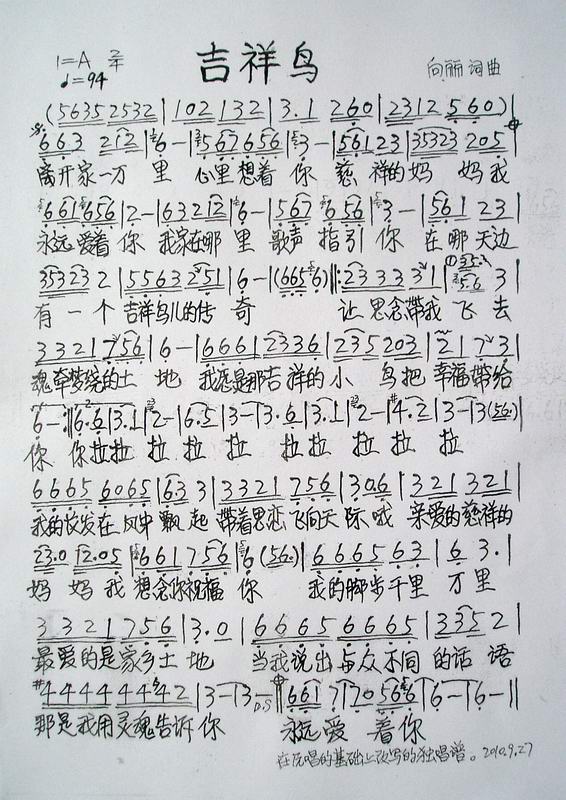 吉祥鸟
1=A 2/4
♩=94
向丽 词曲
(56352532|102 132|3.1 260|2312 560)|
663 212|6-|567656|3-|56123|35323 205|
离开家一万里 心里想着你 慈祥的妈 妈我
661656|2-|63212|6-|567 656|3-|561 23|
永远爱着你 我家在哪里 歌声指引你 在哪天边
35323 2|5563251|6-|(6656)|:23333 1|3|
有一个吉祥鸟儿的传奇 让思念带我飞去
3321756|6-|66612336|235 203|21 73|
魂牵梦绕的土地 我愿是那吉祥的小 鸟把幸福带给
6-:|6.6|3.1|2-|6.5|3-|3.6|3.1|2-|4.2|3-|3(56.)|
你 你拉拉拉拉拉拉拉拉拉
6665 6065|63 3|3321 756|306|321 321|
我的故发在风中飘起 带着思恋飞向天际哦 亲爱的慈祥的
23.0 12.05|661756|6(560)|6665 63|6 3.|
妈妈我想念你祝福你 我的脚步千里万里
3321 756|3.0|6665 6665|335 2|
最爱的是家乡土地 当我说出与众不同的话语
#4444 4442|3-|3-D.S|661 7|70 566|6-|6-||
那是我用灵魂告诉你 永远爱着你
在民唱的基础上改写的独唱谱。2010.9.27